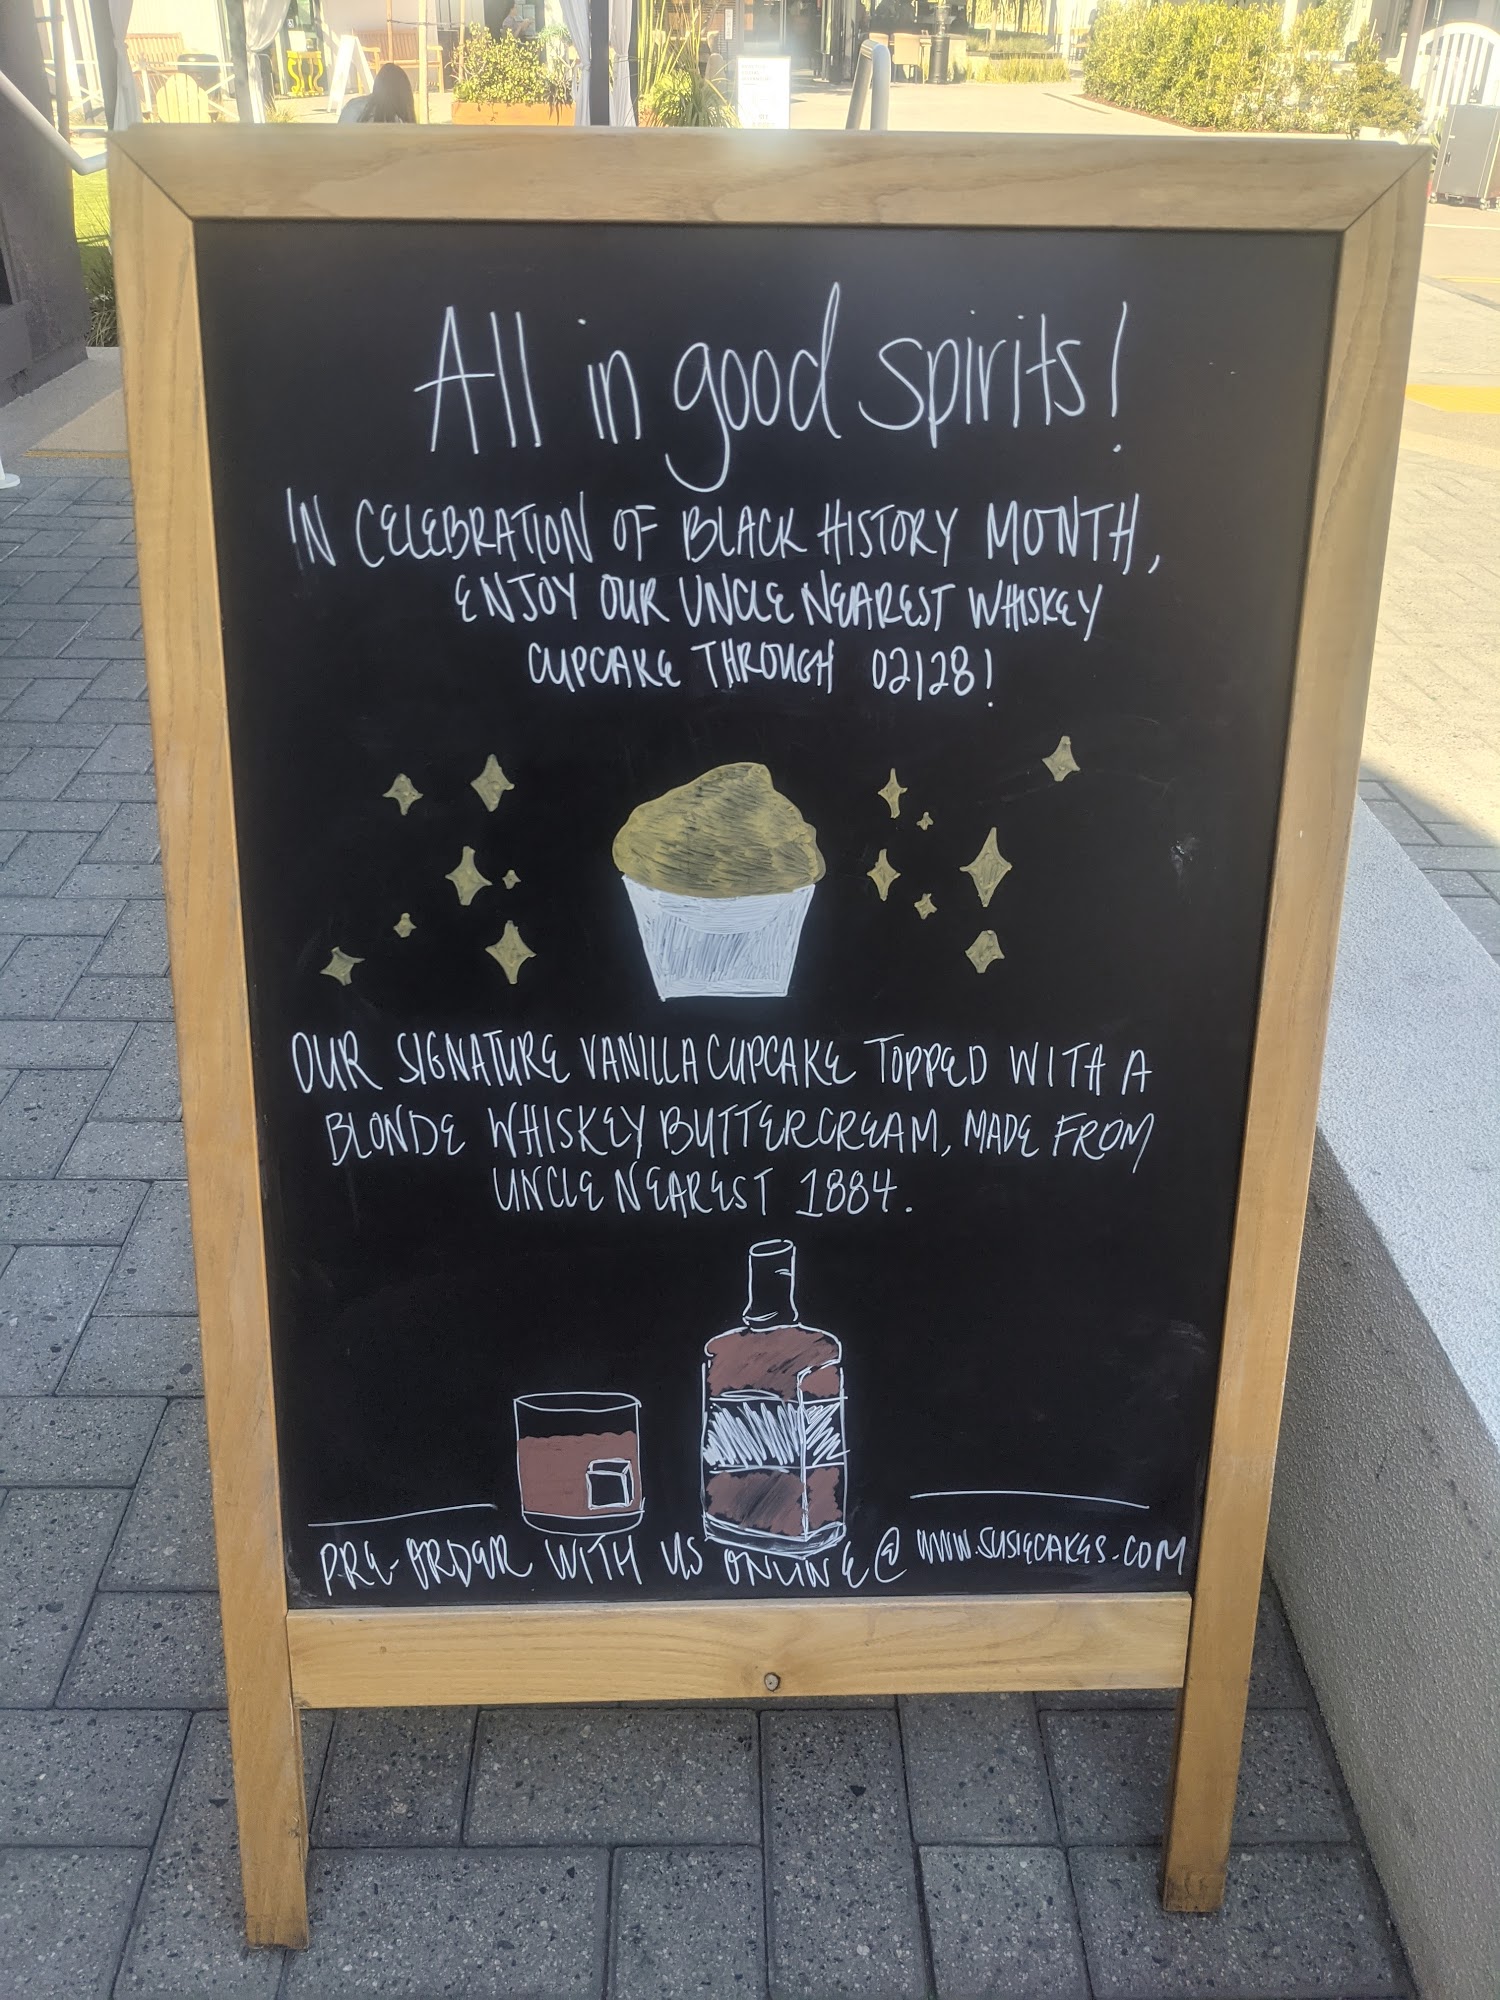 All in good spirits!
IN CELEBRATION OF BLACK HISTORY MONTH,
ENJOY OUR UNCLE NEAREST WHISKEY
CUPCAKE THROUGH 02/28!
OUR SIGNATURE VANILLA CUPCAKE TOPPED WITH A
BLONDE WHISKEY BUTTERCREAM, MADE FROM
UNCLE NEAREST 1884.
PRE-ORDER WITH US ONLINE @ WWW.SUSIECAKES.COM